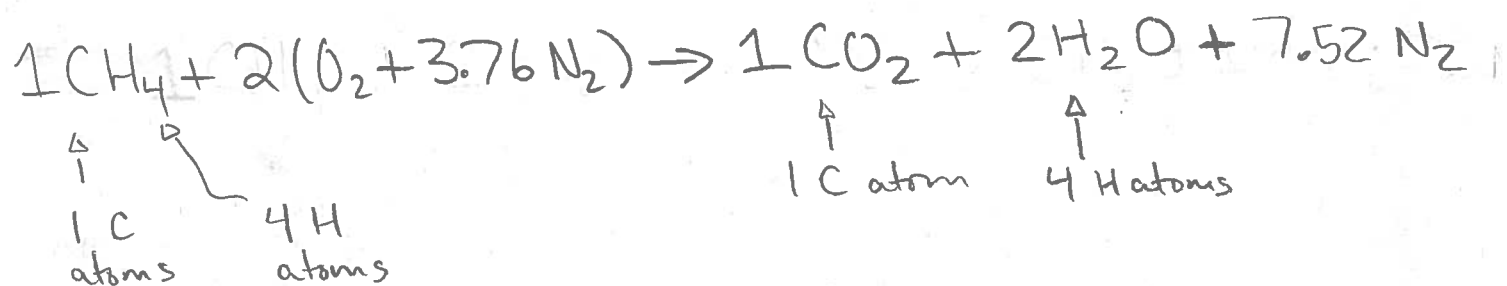 1CH₄ + 2(O₂ + 3.76 N₂) → 1 CO₂ + 2H₂O + 7.52 N₂
1 C atom 4 H atoms
1 C 4 H
atoms atoms